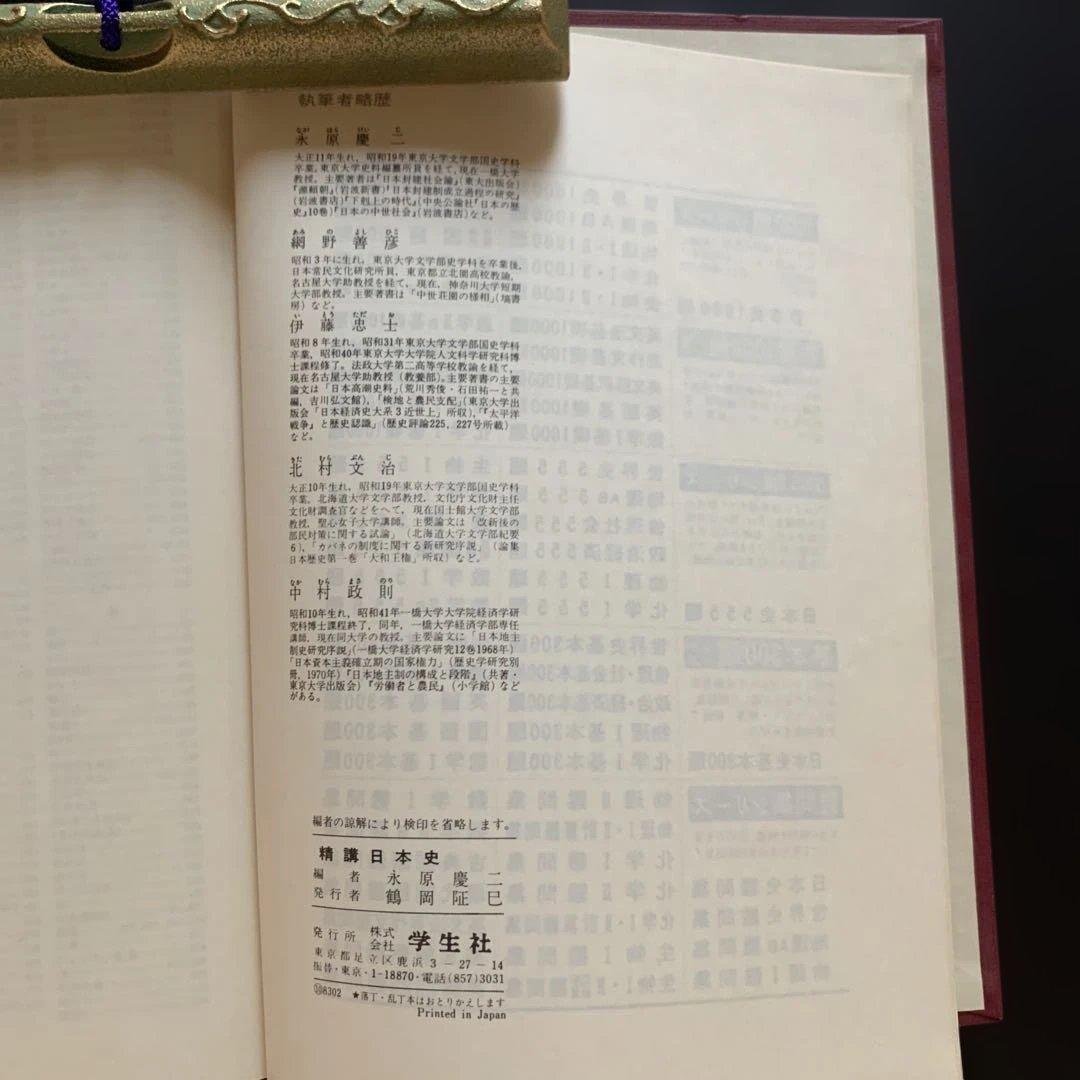 執筆者略歴
なが はら けい じ
永原慶二
大正11年生れ，昭和19年東京大学文学部国史学科
卒業。東京大学史料編纂所員を経て，現在一橋大学
教授，主要著者は『日本封建社会論』(東大出版会)
『源頼朝』(岩波新書)『日本封建制成立過程の研究』
(岩波書店)『下剋上の時代』(中央公論社『日本の歴
史』10巻)『日本の中世社会』(岩波書店)など。
あみ の よし ひこ
網野善彦
昭和3年に生れ，東京大学文学部史学科を卒業後，
日本常民文化研究所員，東京都立北園高校教諭，
名古屋大学助教授を経て，現在，神奈川大学短期
大学部教授。主要著書は「中世荘園の様相」(塙書
房)など。
い とう ただ お
伊藤忠士
昭和8年生れ，昭和31年東京大学文学部国史学科
卒業，昭和40年東京大学大学院人文科学研究科博
士課程修了。法政大学第二高等学校教諭を経て，
現在名古屋大学助教授(教養部)。主要著書の主要
論文は「日本高潮史料」(荒川秀俊・石田祐一と共
編，吉川弘文館)，「検地と農民支配」(東京大学出
版会「日本経済史大系3近世上」所収)，「『太平洋
戦争』と歴史認識」(歴史評論225，227号所載)
など。
きた むら ぶん じ
北村文治
大正10年生れ，昭和19年東京大学文学部国史学科
卒業，北海道大学文学部教授，文化庁文化財主任
文化財調査官などをへて，現在国士館大学文学部
教授，聖心女子大学講師。主要論文は「改新後の
部民対策に関する試論」(北海道大学文学部紀要
6)，「カバネの制度に関する新研究序説」(論集
日本歴史第一巻「大和王権」所収)など。
なか むら まさ のり
中村政則
昭和10年生れ，昭和41年一橋大学大学院経済学研
究科博士課程終了，同年，一橋大学経済学部専任
講師，現在同大学の教授。主要論文に「日本地主
制史研究序説」(一橋大学経済学研究12巻1968年)
「日本資本主義確立期の国家権力」(歴史学研究別
冊，1970年)『日本地主制の構成と段階』(共著・
東京大学出版会)『労働者と農民』(小学館)など
がある。
編者の諒解により検印を省略します。
精講日本史
編者 永原慶二
発行者 鶴岡阷巳
発行所 株式会社 学生社
東京都足立区鹿浜3－27－14
振替・東京・1-18870・電話(857)3031
8302 ★落丁・乱丁本はおとりかえします
Printed in Japan